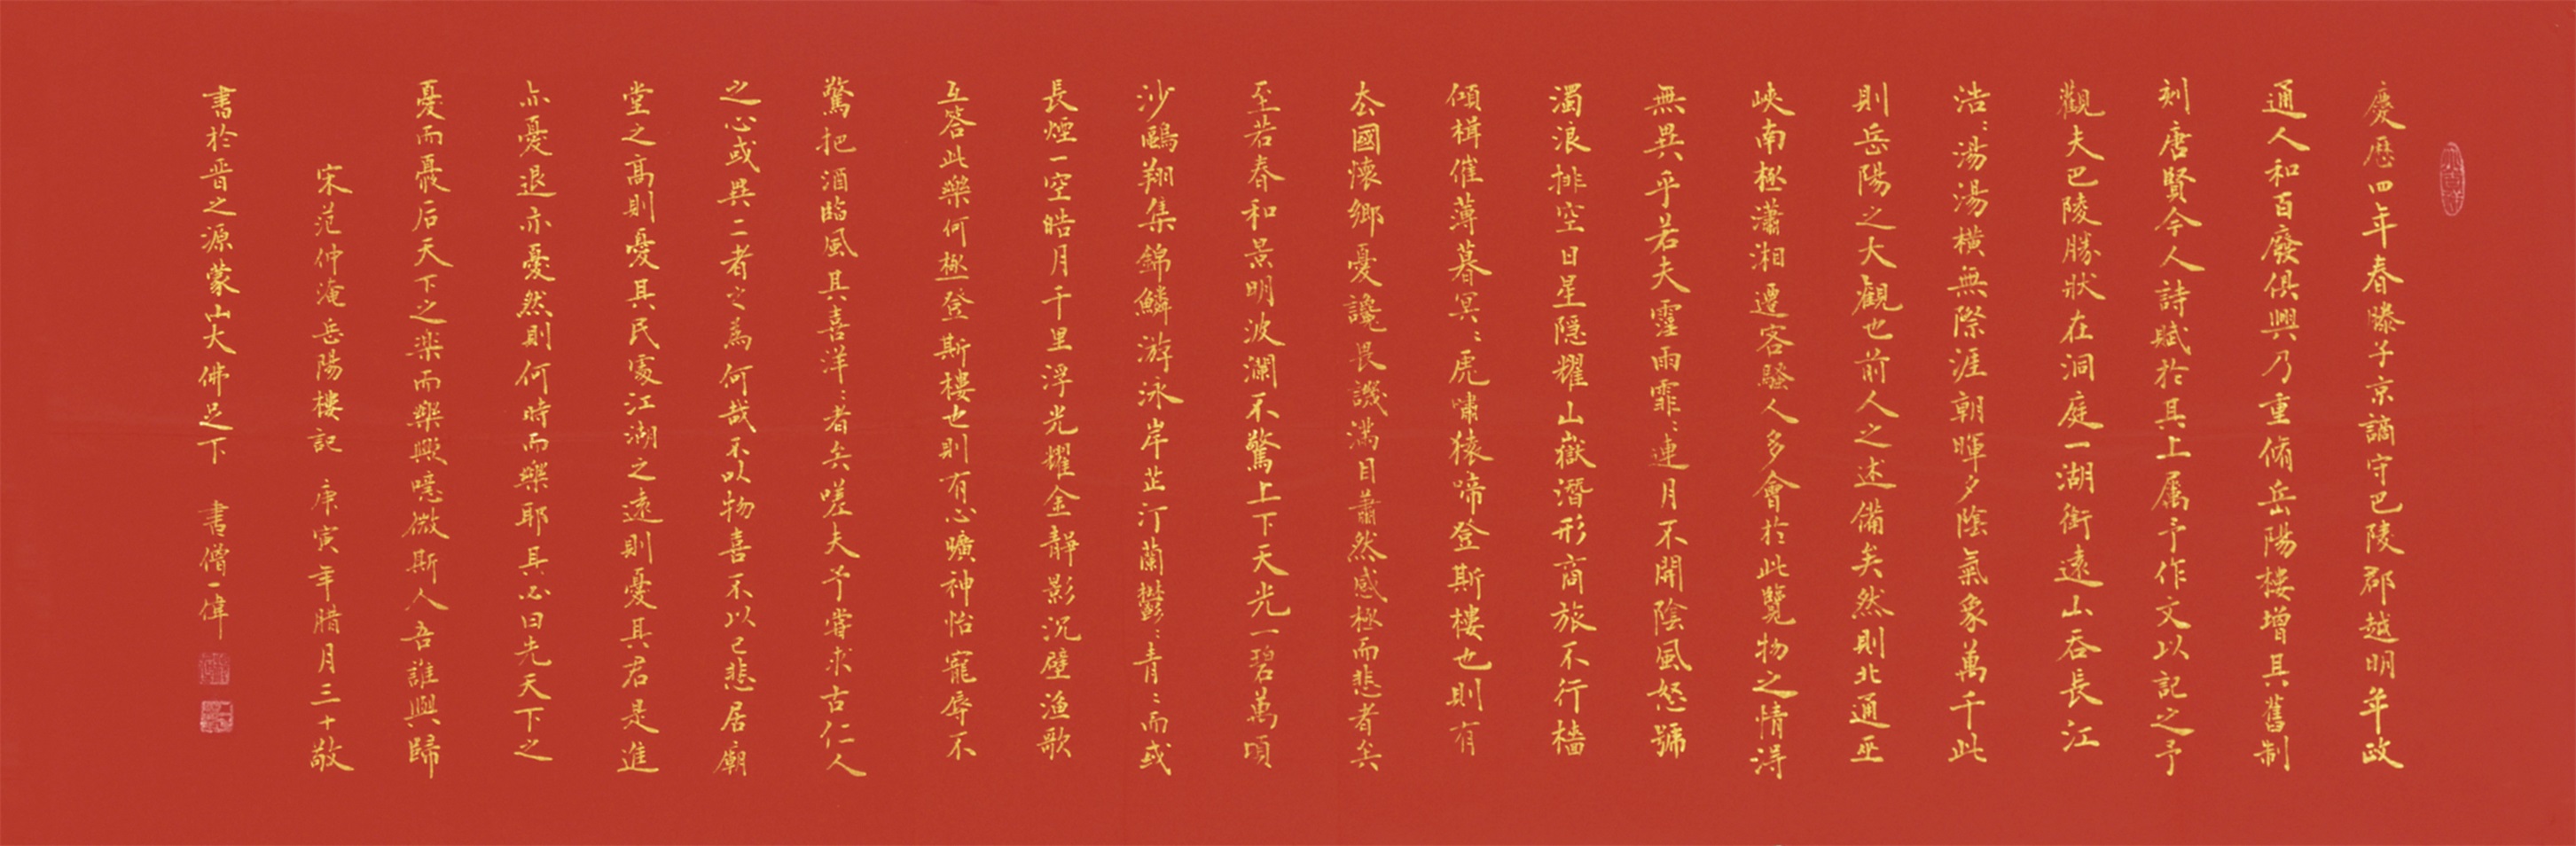 慶歷四年春滕子京謫守巴陵郡越明年政
通人和百廢俱興乃重脩岳陽樓增其舊制
刻唐賢今人詩賦於其上属予作文以記之予
觀夫巴陵勝狀在洞庭一湖銜遠山吞長江
浩〻湯湯橫無際涯朝暉夕陰氣象萬千此
則岳陽之大觀也前人之述備矣然則北通巫
峽南極瀟湘遷客騷人多會於此覽物之情得
無異乎若夫霪雨霏〻連月不開陰風怒號
濁浪排空日星隱耀山嶽潛形商旅不行檣
傾楫催薄暮冥〻虎嘯猿啼登斯樓也則有
去國懷鄉憂讒畏譏滿目蕭然感極而悲者矣
至若春和景明波瀾不驚上下天光一碧萬頃
沙鷗翔集錦鱗游泳岸芷汀蘭鬱〻青〻而或
長煙一空皓月千里浮光耀金靜影沉璧漁歌
互答此樂何極登斯樓也則有心曠神怡寵辱不
驚把酒臨風其喜洋〻者矣嗟夫予嘗求古仁人
之心或異二者之為何哉不以物喜不以己悲居廟
堂之高則憂其民處江湖之遠則憂其君是進
亦憂退亦憂然則何時而樂耶其必曰先天下之
憂而憂后天下之楽而樂歟噫微斯人吾誰與歸
宋范仲淹岳陽樓記 庚寅年腊月三十敬
書於晋之源蒙山大佛足下 書僧一偉